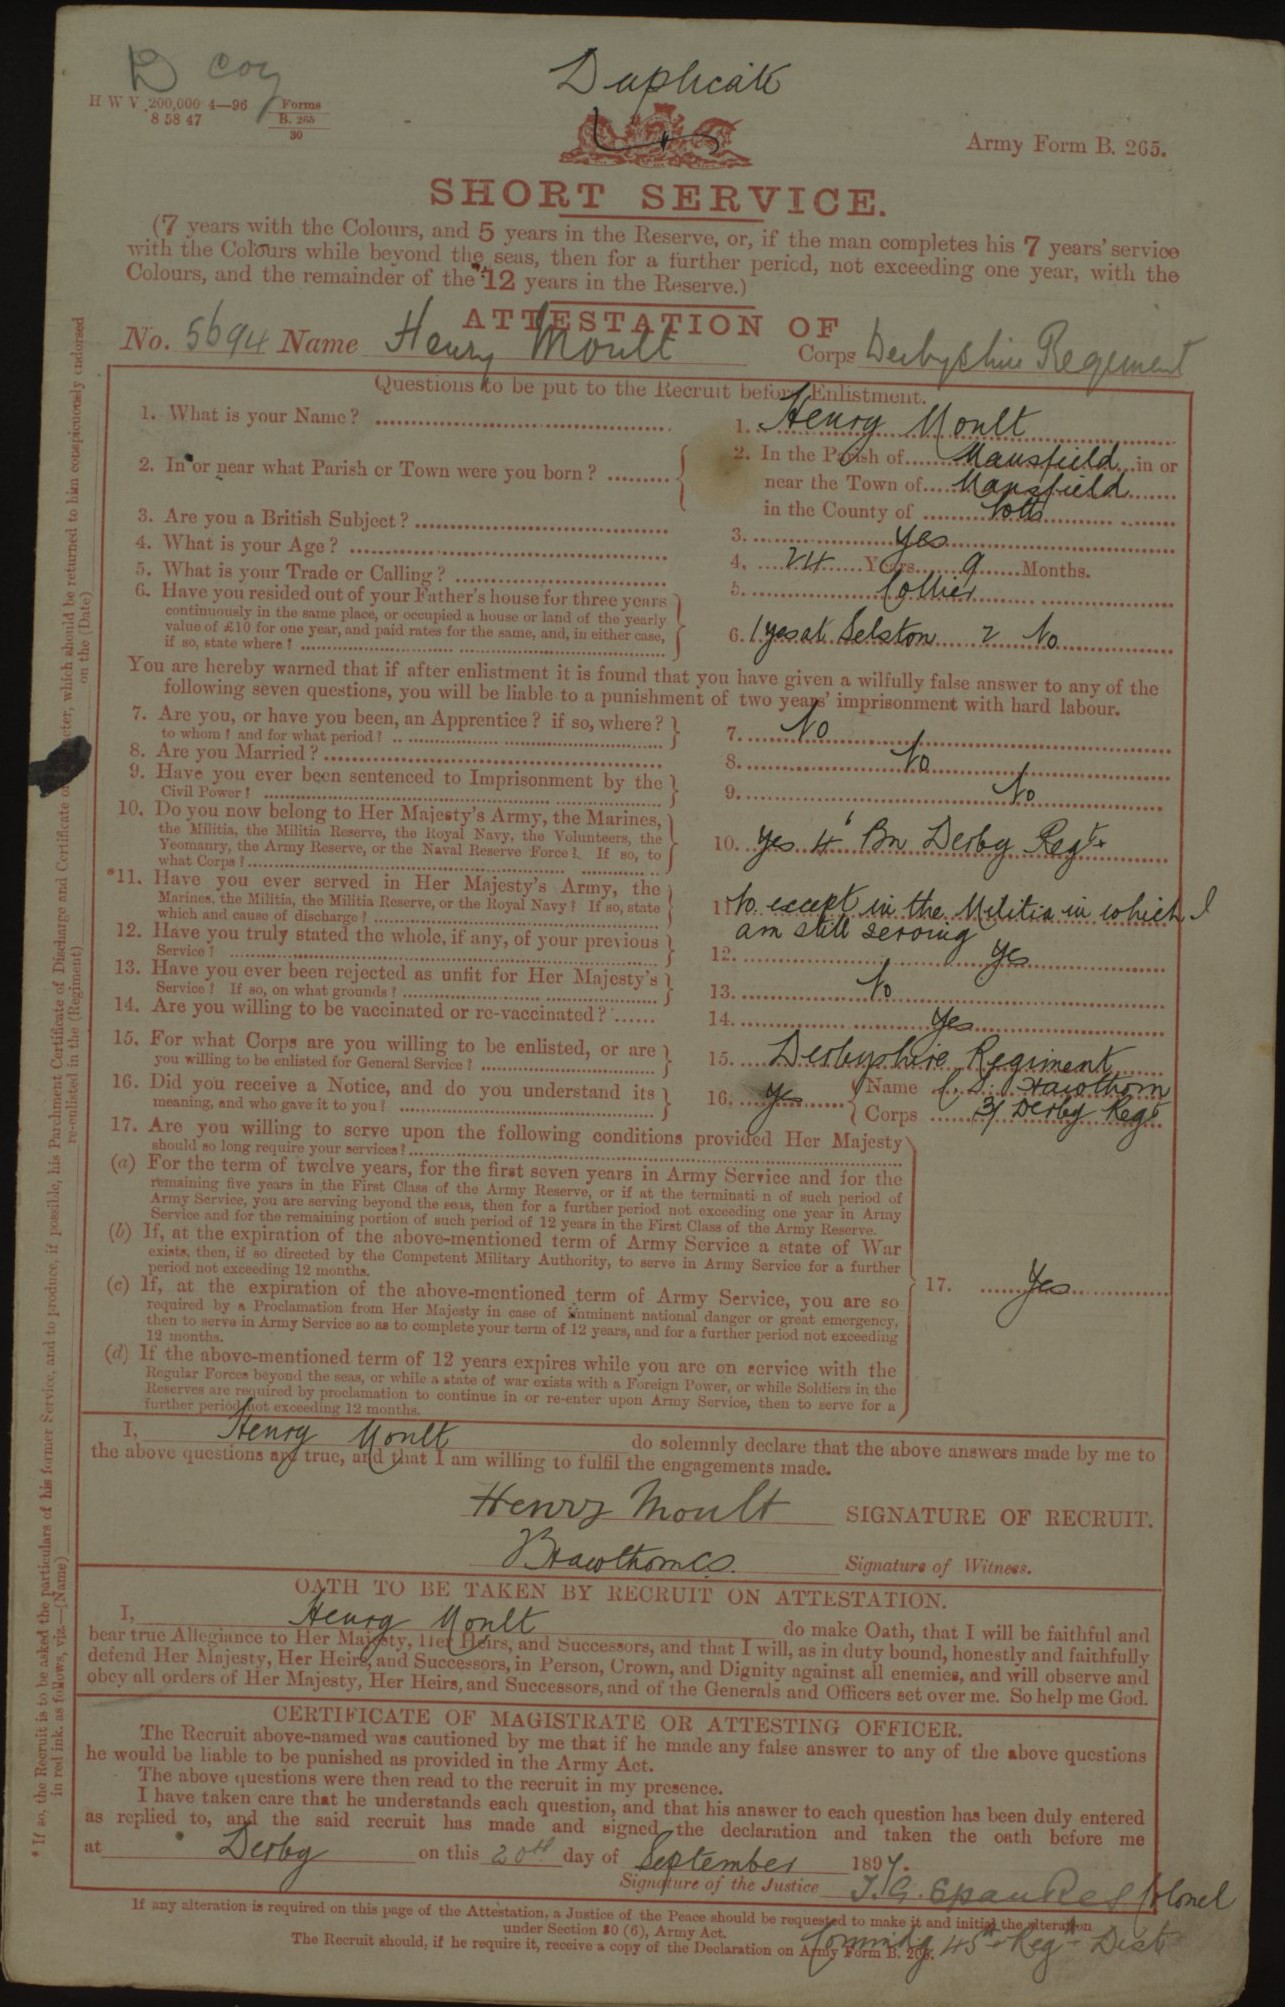 D Coy
Duplicate
H W V 200,000 4—96 Forms
8 58 47 B. 265
30
Army Form B. 265.
SHORT SERVICE.
(7 years with the Colours, and 5 years in the Reserve, or, if the man completes his 7 years' service
with the Colours while beyond the seas, then for a further period, not exceeding one year, with the
Colours, and the remainder of the 12 years in the Reserve.)
ATTESTATION OF
No. 5694 Name Henry Moult Corps Derbyshire Regiment
Questions to be put to the Recruit before Enlistment.
1. What is your Name? 1. Henry Moult
2. In or near what Parish or Town were you born? 2. In the Parish of Mansfield in or
near the Town of Mansfield
in the County of Notts
3. Are you a British Subject? 3. Yes
4. What is your Age? 4. 24 Years 9 Months.
5. What is your Trade or Calling? 5. Collier
6. Have you resided out of your Father's house for three years
continuously in the same place, or occupied a house or land of the yearly
value of £10 for one year, and paid rates for the same, and, in either case,
if so, state where? 6. 1 yes at Selston 2 No
You are hereby warned that if after enlistment it is found that you have given a wilfully false answer to any of the
following seven questions, you will be liable to a punishment of two years' imprisonment with hard labour.
7. Are you, or have you been, an Apprentice? if so, where?
to whom? and for what period? 7. No
8. Are you Married? 8. No
9. Have you ever been sentenced to Imprisonment by the
Civil Power? 9. No
10. Do you now belong to Her Majesty's Army, the Marines,
the Militia, the Militia Reserve, the Royal Navy, the Volunteers, the
Yeomanry, the Army Reserve, or the Naval Reserve Force? If so, to
what Corps? 10. Yes 4 Bn Derby Regt
*11. Have you ever served in Her Majesty's Army, the
Marines, the Militia, the Militia Reserve, or the Royal Navy? If so, state
which and cause of discharge? 11. No except in the Militia in which I
am still serving
12. Have you truly stated the whole, if any, of your previous
Service? 12. Yes
13. Have you ever been rejected as unfit for Her Majesty's
Service? If so, on what grounds? 13. No
14. Are you willing to be vaccinated or re-vaccinated? 14. Yes
15. For what Corps are you willing to be enlisted, or are
you willing to be enlisted for General Service? 15. Derbyshire Regiment
16. Did you receive a Notice, and do you understand its
meaning, and who gave it to you? 16. Yes Name C. S. Hawthorn
Corps 3/ Derby Regt
17. Are you willing to serve upon the following conditions provided Her Majesty
should so long require your services?
(a) For the term of twelve years, for the first seven years in Army Service and for the
remaining five years in the First Class of the Army Reserve, or if at the termination of such period of
Army Service, you are serving beyond the seas, then for a further period not exceeding one year in Army
Service and for the remaining portion of such period of 12 years in the First Class of the Army Reserve.
(b) If, at the expiration of the above-mentioned term of Army Service a state of War
exists, then, if so directed by the Competent Military Authority, to serve in Army Service for a further
period not exceeding 12 months.
(c) If, at the expiration of the above-mentioned term of Army Service, you are so
required by a Proclamation from Her Majesty in case of imminent national danger or great emergency,
then to serve in Army Service so as to complete your term of 12 years, and for a further period not exceeding
12 months.
(d) If the above-mentioned term of 12 years expires while you are on service with the
Regular Forces beyond the seas, or while a state of war exists with a Foreign Power, or while Soldiers in the
Reserves are required by proclamation to continue in or re-enter upon Army Service, then to serve for a
further period not exceeding 12 months.
17. Yes
I, Henry Moult do solemnly declare that the above answers made by me to
the above questions are true, and that I am willing to fulfil the engagements made.
Henry Moult SIGNATURE OF RECRUIT.
Hawthorn CS. Signature of Witness.
OATH TO BE TAKEN BY RECRUIT ON ATTESTATION.
I, Henry Moult do make Oath, that I will be faithful and
bear true Allegiance to Her Majesty, Her Heirs, and Successors, and that I will, as in duty bound, honestly and faithfully
defend Her Majesty, Her Heirs, and Successors, in Person, Crown, and Dignity against all enemies, and will observe and
obey all orders of Her Majesty, Her Heirs, and Successors, and of the Generals and Officers set over me. So help me God.
CERTIFICATE OF MAGISTRATE OR ATTESTING OFFICER.
The Recruit above-named was cautioned by me that if he made any false answer to any of the above questions
he would be liable to be punished as provided in the Army Act.
The above questions were then read to the recruit in my presence.
I have taken care that he understands each question, and that his answer to each question has been duly entered
as replied to, and the said recruit has made and signed the declaration and taken the oath before me
at Derby on this 20th day of September 1897.
Signature of the Justice J. G. Colonel
Commdg 45th Regtl Dist
If any alteration is required on this page of the Attestation, a Justice of the Peace should be requested to make it and initial the alteration
under Section 80 (6), Army Act.
The Recruit should, if he require it, receive a copy of the Declaration on Army Form B.
* If so, the Recruit is to be asked the particulars of his former Service, and to produce, if possible, his Parchment Certificate of Discharge and Certificate of Character, which should be returned to him conspicuously endorsed
in red ink, as follows, viz.—(Name) re-enlisted in the (Regiment) on the (Date)